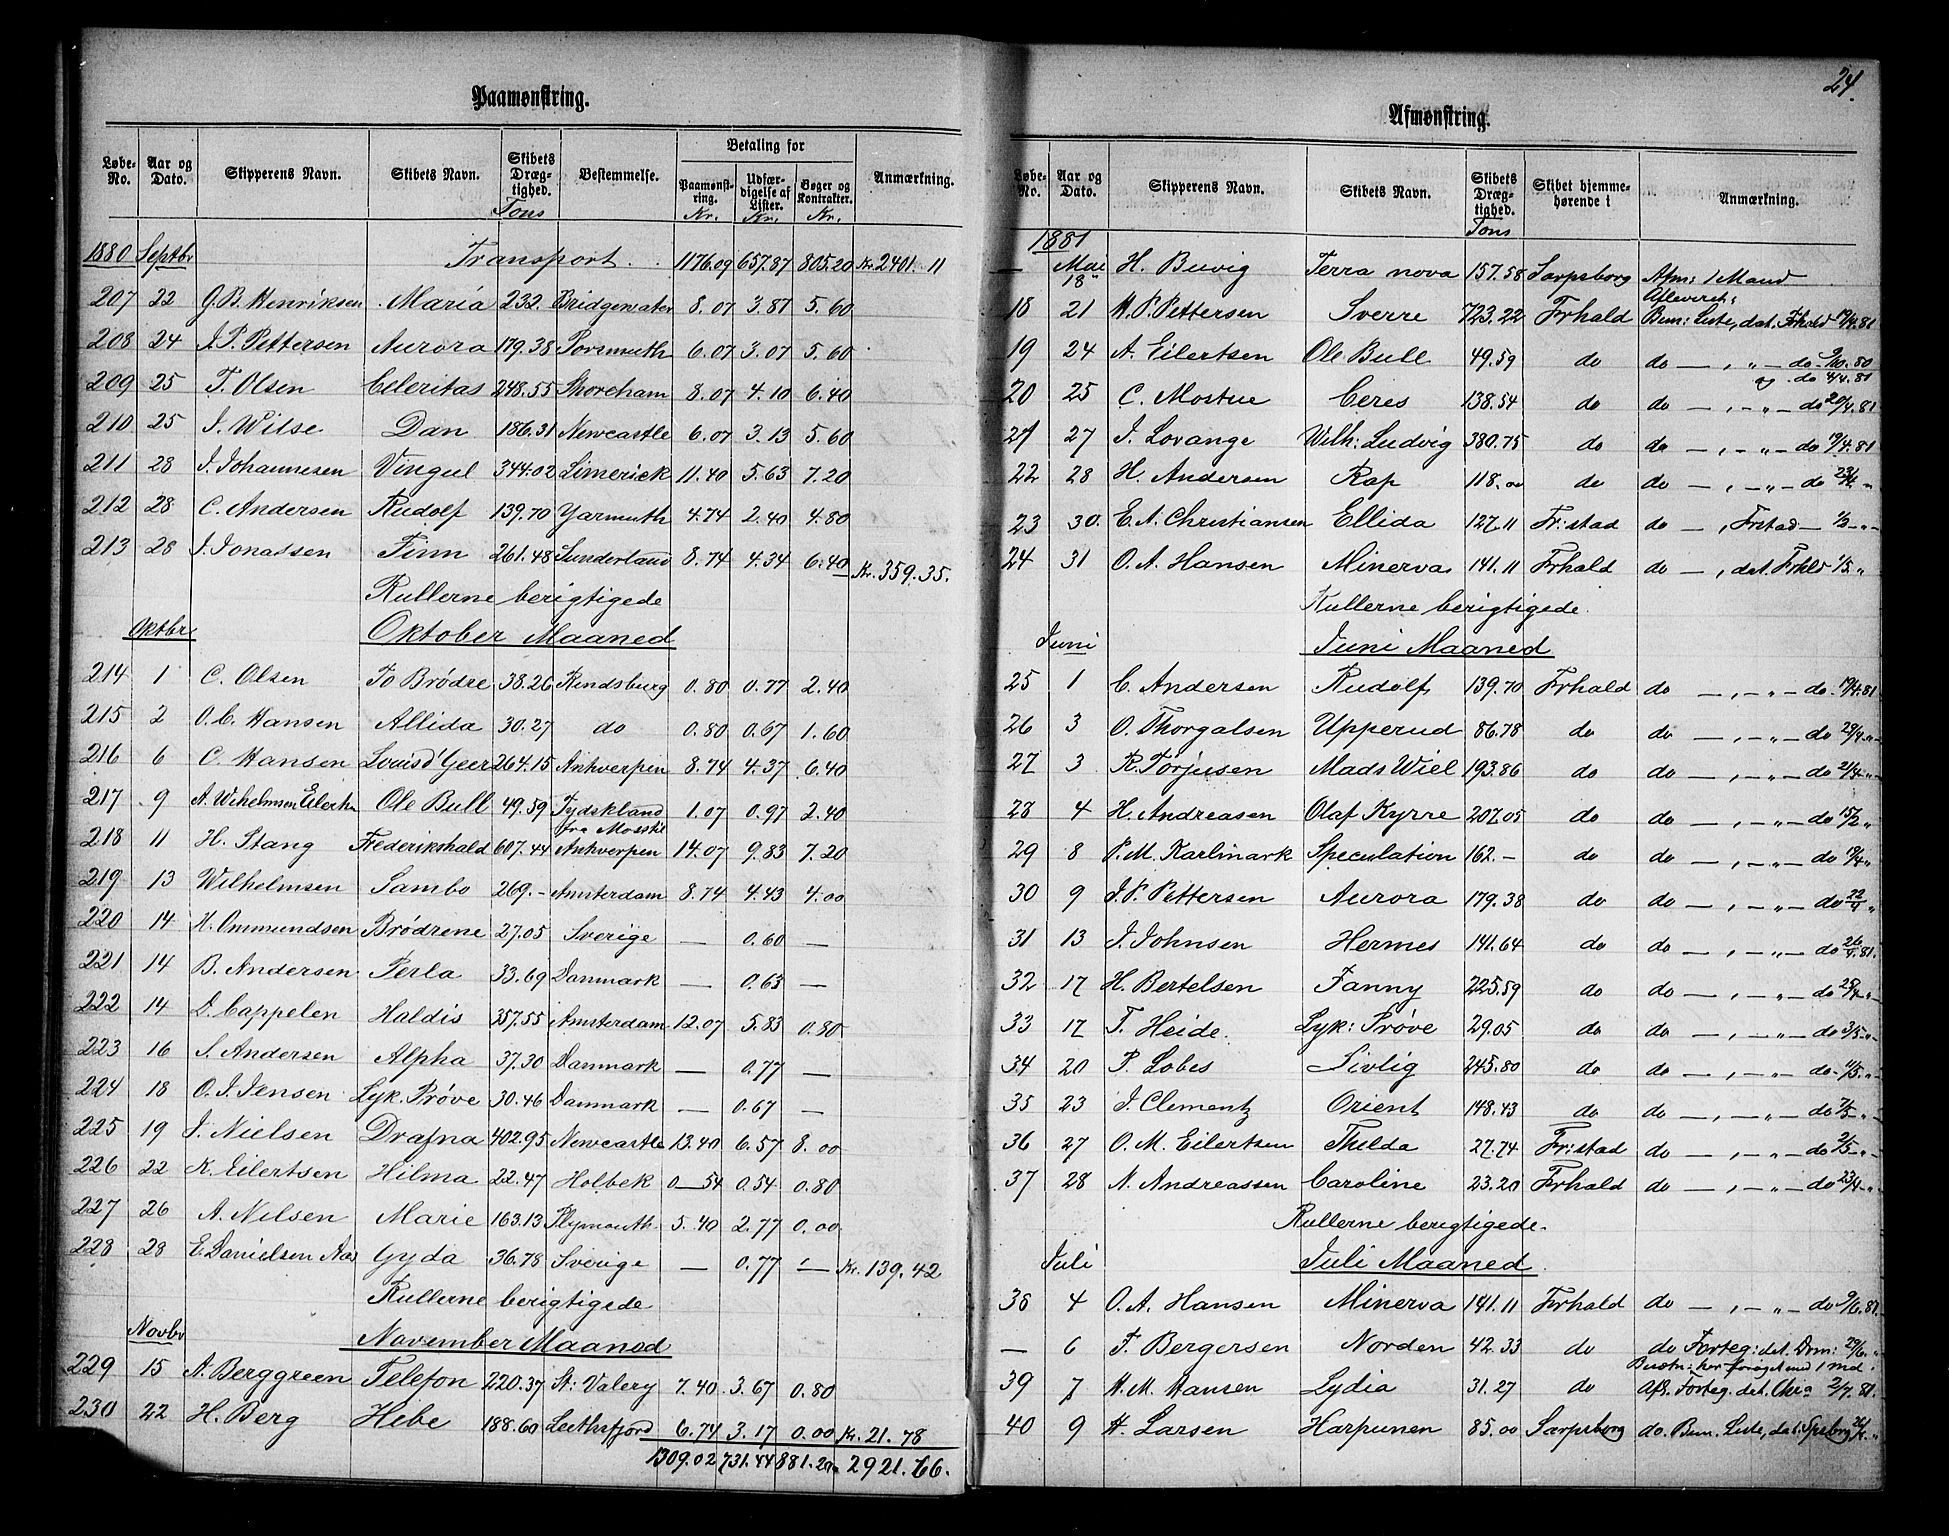 Paamønstring.
Løbe-No. Aar og Dato. Skipperens Navn. Skibets Navn. Skibets Dræg-tighed. Tons Bestemmelse. Betaling for Paamønst-ring. Kr. Udfær-digelse af Lister. Kr. Bøger og Kontrakter. Kr. Anmærkning.
1880 Septbr Transport. 1176.09 657.87 805.20 Kr. 2401.11
207 22 G. B. Henriksen Maria 232. Bridgewater 8.07 3.87 5.60
208 24 J. P. Pettersen Aurora 179.38 Porsmuth 6.07 3.07 5.60
209 25 T. Olsen Celeritas 248.55 Shoreham 8.07 4.10 6.40
210 25 J. Wilse Dan 186.31 Newcastle 6.07 3.13 5.60
211 28 J. Johannesen Vingul 344.02 Limerick 11.40 5.63 7.20
212 28 C. Andersen Rudolf 139.70 Yarmuth 4.74 2.40 4.80
213 28 J. Jonassen Finn 261.48 Sunderland 8.74 4.34 6.40 Kr. 359.35.
Rullerne berigtigede
Oktbr Oktober Maaned
214 1 C. Olsen To Brødre 38.26 Rendsburg 0.80 0.77 2.40
215 2 O. C. Hansen Allida 30.27 do 0.80 0.67 1.60
216 6 C. Hansen Louis d'Geer 264.15 Anhverpen 8.74 4.37 6.40
217 9 A. Wihelmsen Eilertsn Ole Bull 49.59 Tydskland fra Moss til 1.07 0.97 2.40
218 11 H. Stang Frederikshald 607.44 Anhverpen 14.07 9.83 7.20
219 13 Wilhelmsen Sambo 269.- Amsterdam 8.74 4.43 4.00
220 14 H. Ommundsen Brødrene 27.05 Sverige — 0.60 —
221 14 B. Andersen Perla 33.69 Danmark — 0.63 —
222 14 D. Cappelen Haldis 357.55 Amsterdam 12.07 5.83 0.80
223 16 S. Andersen Alpha 37.30 Danmark — 0.77 —
224 18 O. J. Jensen Lyk. Prøve 30.46 Danmark — 0.67 —
225 19 J. Nielsen Drafna 402.95 Newcastle 13.40 6.57 8.00
226 22 K. Eilertsen Hilma 22.47 Holbek 0—54 0.54 0.80
227 26 A. Nilsen Marie 163.13 Plymouth 5.40 2.77 0.00
228 28 E. Danielsen Aas Gyda 36.78 Sverige — 0.77 — Kr. 139.42
Rullerne berigtigede
Novbr November Maaned
229 15 A. Berggreen Telefon 220.37 St: Valery 7.40 3.67 0.80
230 22 H. Berg Hebe 188.60 Leithsfjord 6.74 3.17 0.00 Kr. 21.78
1309.02 731.44 881.20 2921.66.
24.
Afmønstring.
Løbe-No. Aar og Dato. Skipperens Navn. Skibets Navn. Skibets Dræg-tighed. Tons Skibet hjemme-hørende i Anmærkning.
1881
— Mai 18 H. Buvig Terra nova 157.58 Sarpsborg Afm: 1 Mand
Afleveret:
18 21 H. P. Pettersen Sverre 723.22 Frhald Bem: Liste, dat. Frhald 19/4.81
19 24 A. Eilertsen Ole Bull 49.59 do do — , „ — do 9/10.80
og do 4/4.81
20 25 C. Mostue Ceres 138.54 do do — , - „ — do 20/4.81
21 27 J. Lovange Wilh: Ludvig 380.75 do do — , — „ — do 19/4.81
22 28 H. Andersen Rap 118.00 do do — , — „ — do 23/4 „
23 30. E. A. Christiansen Ellida 127.11 Fr:stad do — , Frstad — 1/3 - „ -
24 31 O. A. Hansen Minerva 141.11 Frhald do — , dat. Frhld 1/5. „
Rullerne berigtigede.
Juni Juni Maaned
25 1 C. Andersen Rudolf 139.70 Frhald do — , — „ — do 19/4.81
26 3 O. Thorgalsen Upperud 86.78 do do — , — „ — do 29/4. „ -
27 3 R. Torjusen Mads Wiel 193.86 do do — , — „ — do 21/4 - „ -
28 4 H. Andreasen Olaf Kyrre 207.05 do do — , — „ — do 15/2 „
29 8 P. M. Karlmark Speculation 162.- do do — , — „ — do 19/4 „
30 9 J. P. Pettersen Aurora 179.38 do do — , — „ — do 22/4 „
31 13 J. Johnsen Hermes 141.64 do do — , — „ — do 26/4.81.
32 17 H. Bertelsen Fanny 225.59 do do — , — „ — do 28/4 - „
33 17 T. Heide. Lyk: Prøve 29.05 do do — , — „ — do 3/5 - „
34 20 P. Lobes Sivlig 245.80 do do — , — „ — do 4/5. „
35 23 J. Clementz Orient 148.43 do do — , — „ — do 7/5 - „
36 27 O. M. Eilertsen Thilda 27.74 Fr:stad do — , — „ — do 2/5 - „
37 28 N. Andreassen Caroline 23.20 Frhald do — , — „ — do 23/4 - „
Rullerne berigtigede.
Juli Juli Maaned.
38 4 O. A. Hansen Minerva 141.11 Frhald do — , — „ — do 9/6.81.
— 6 T. Bergersen Norden 42.33 do do Forteg: dat. Drm: 29/6. „
39 7 H. M. Hansen Lydia 31.27 do Afl. Forteg. dat. Chria 2/7.81.
40 9 H. Larsen Harpunen 85.00 Sarpsborg do. Bem. Liste, dat: Spsborg